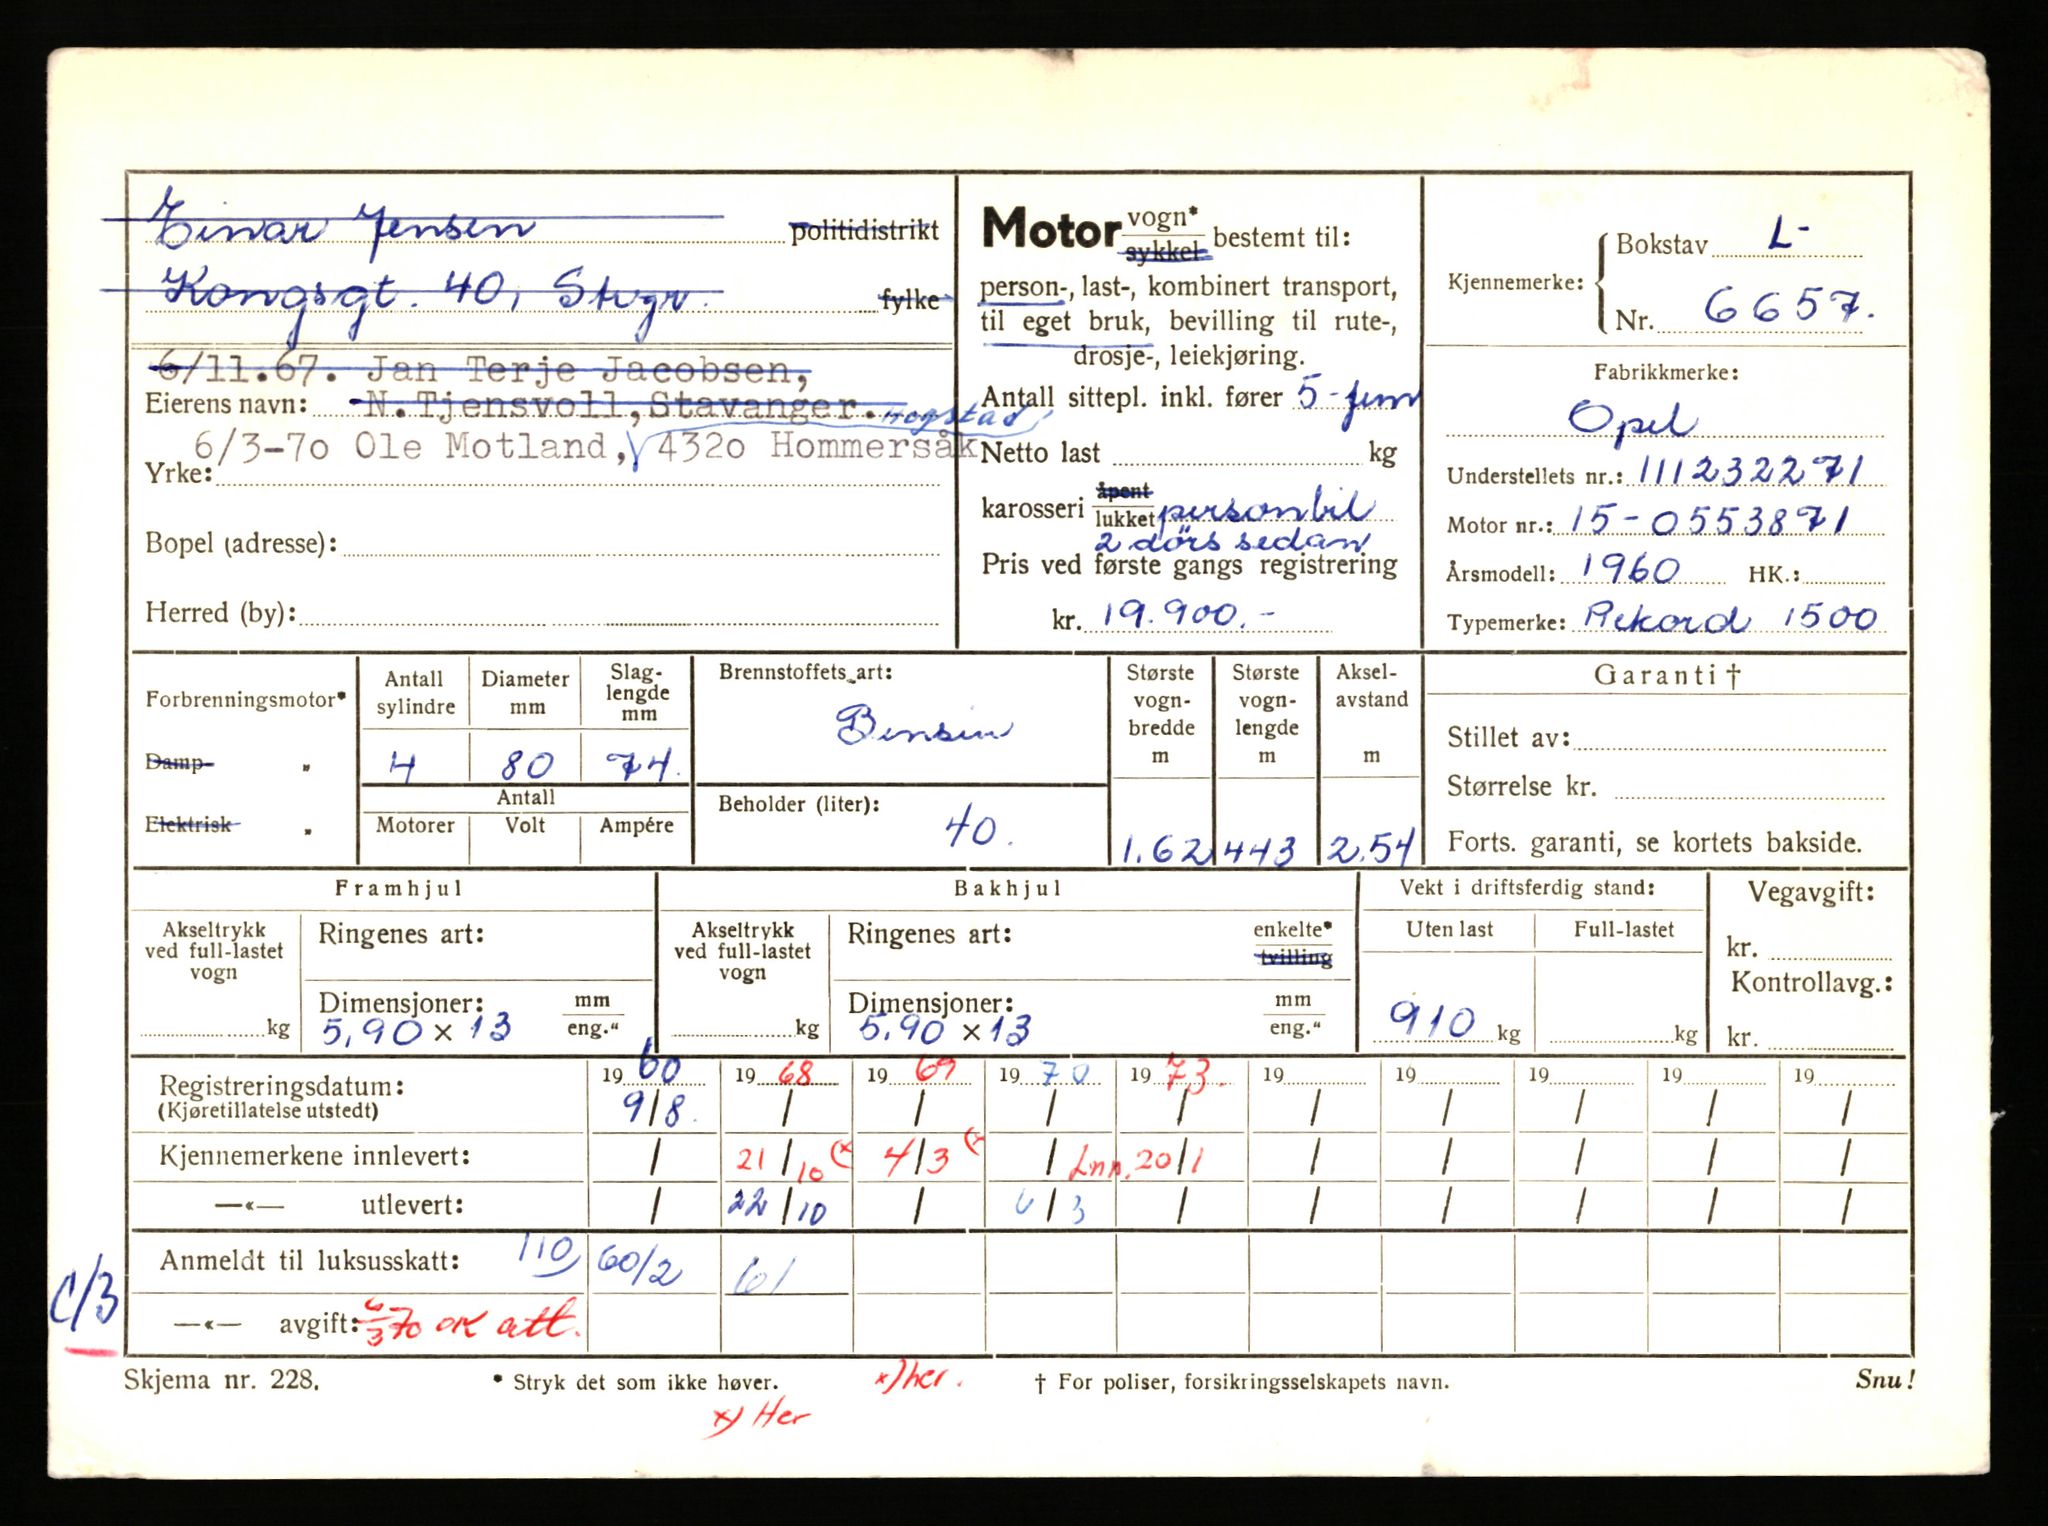 Einar Jensen politidistrikt
Kongsgt. 40, Stvgr. fylke
6/11.67. Jan Terje Jacobsen,
Eierens navn: N.Tjensvoll, Stavanger.
Hogstad
6/3-70 Ole Motland, √ 4320 Hommersåk
Yrke:
Bopel (adresse):
Herred (by):
Motor vogn* sykkel bestemt til:
person-, last-, kombinert transport,
til eget bruk, bevilling til rute-,
drosje-, leiekjøring.
Antall sittepl. inkl. fører 5-fem
Netto last kg
karosseri åpent lukket personbil
2 dørs sedan
Pris ved første gangs registrering
kr. 19.900.-
Kjennemerke: Bokstav L-
Nr. 6657.
Fabrikkmerke:
Opel
Understellets nr.: 111232271
Motor nr.: 15-0553871
Årsmodell: 1960 HK.:
Typemerke: Rekord 1500
Forbrenningsmotor*
Damp- "
Elektrisk "
Antall sylindre Diameter mm Slag-lengde mm
4 80 74.
Antall
Motorer Volt Ampére
Brennstoffets art:
Bensin
Beholder (liter):
40.
Største vogn-bredde m Største vogn-lengde m Aksel-avstand m
1.62 443 2.54
Garanti †
Stillet av:
Størrelse kr.
Forts. garanti, se kortets bakside.
Framhjul
Akseltrykk ved full-lastet vogn
kg
Ringenes art:
Dimensjoner: mm eng."
5,90 x 13
Bakhjul
Akseltrykk ved full-lastet vogn
kg
Ringenes art: enkelte* tvilling
Dimensjoner: mm eng."
5.90 x 13
Vekt i driftsferdig stand:
Uten last Full-lastet
910 kg kg
Vegavgift:
kr.
Kontrollavg.:
kr.
Registreringsdatum: 1960 1968 1969 1970 1973. 19 19 19 19 19
(Kjøretillatelse utstedt) 9/8. / / / / / / / / /
Kjennemerkene innlevert: / 21/10 (x 4/3 (x / Inn. 20/1 / / / / /
—«— utlevert: / 22/10 / 6/3 / / / / / /
Anmeldt til luksusskatt: 110 60/2 61
C/3
—«— avgift: 6/3 70 OK att.
Skjema nr. 228. * Stryk det som ikke høver. x) her. † For poliser, forsikringsselskapets navn. Snu!
x) Her